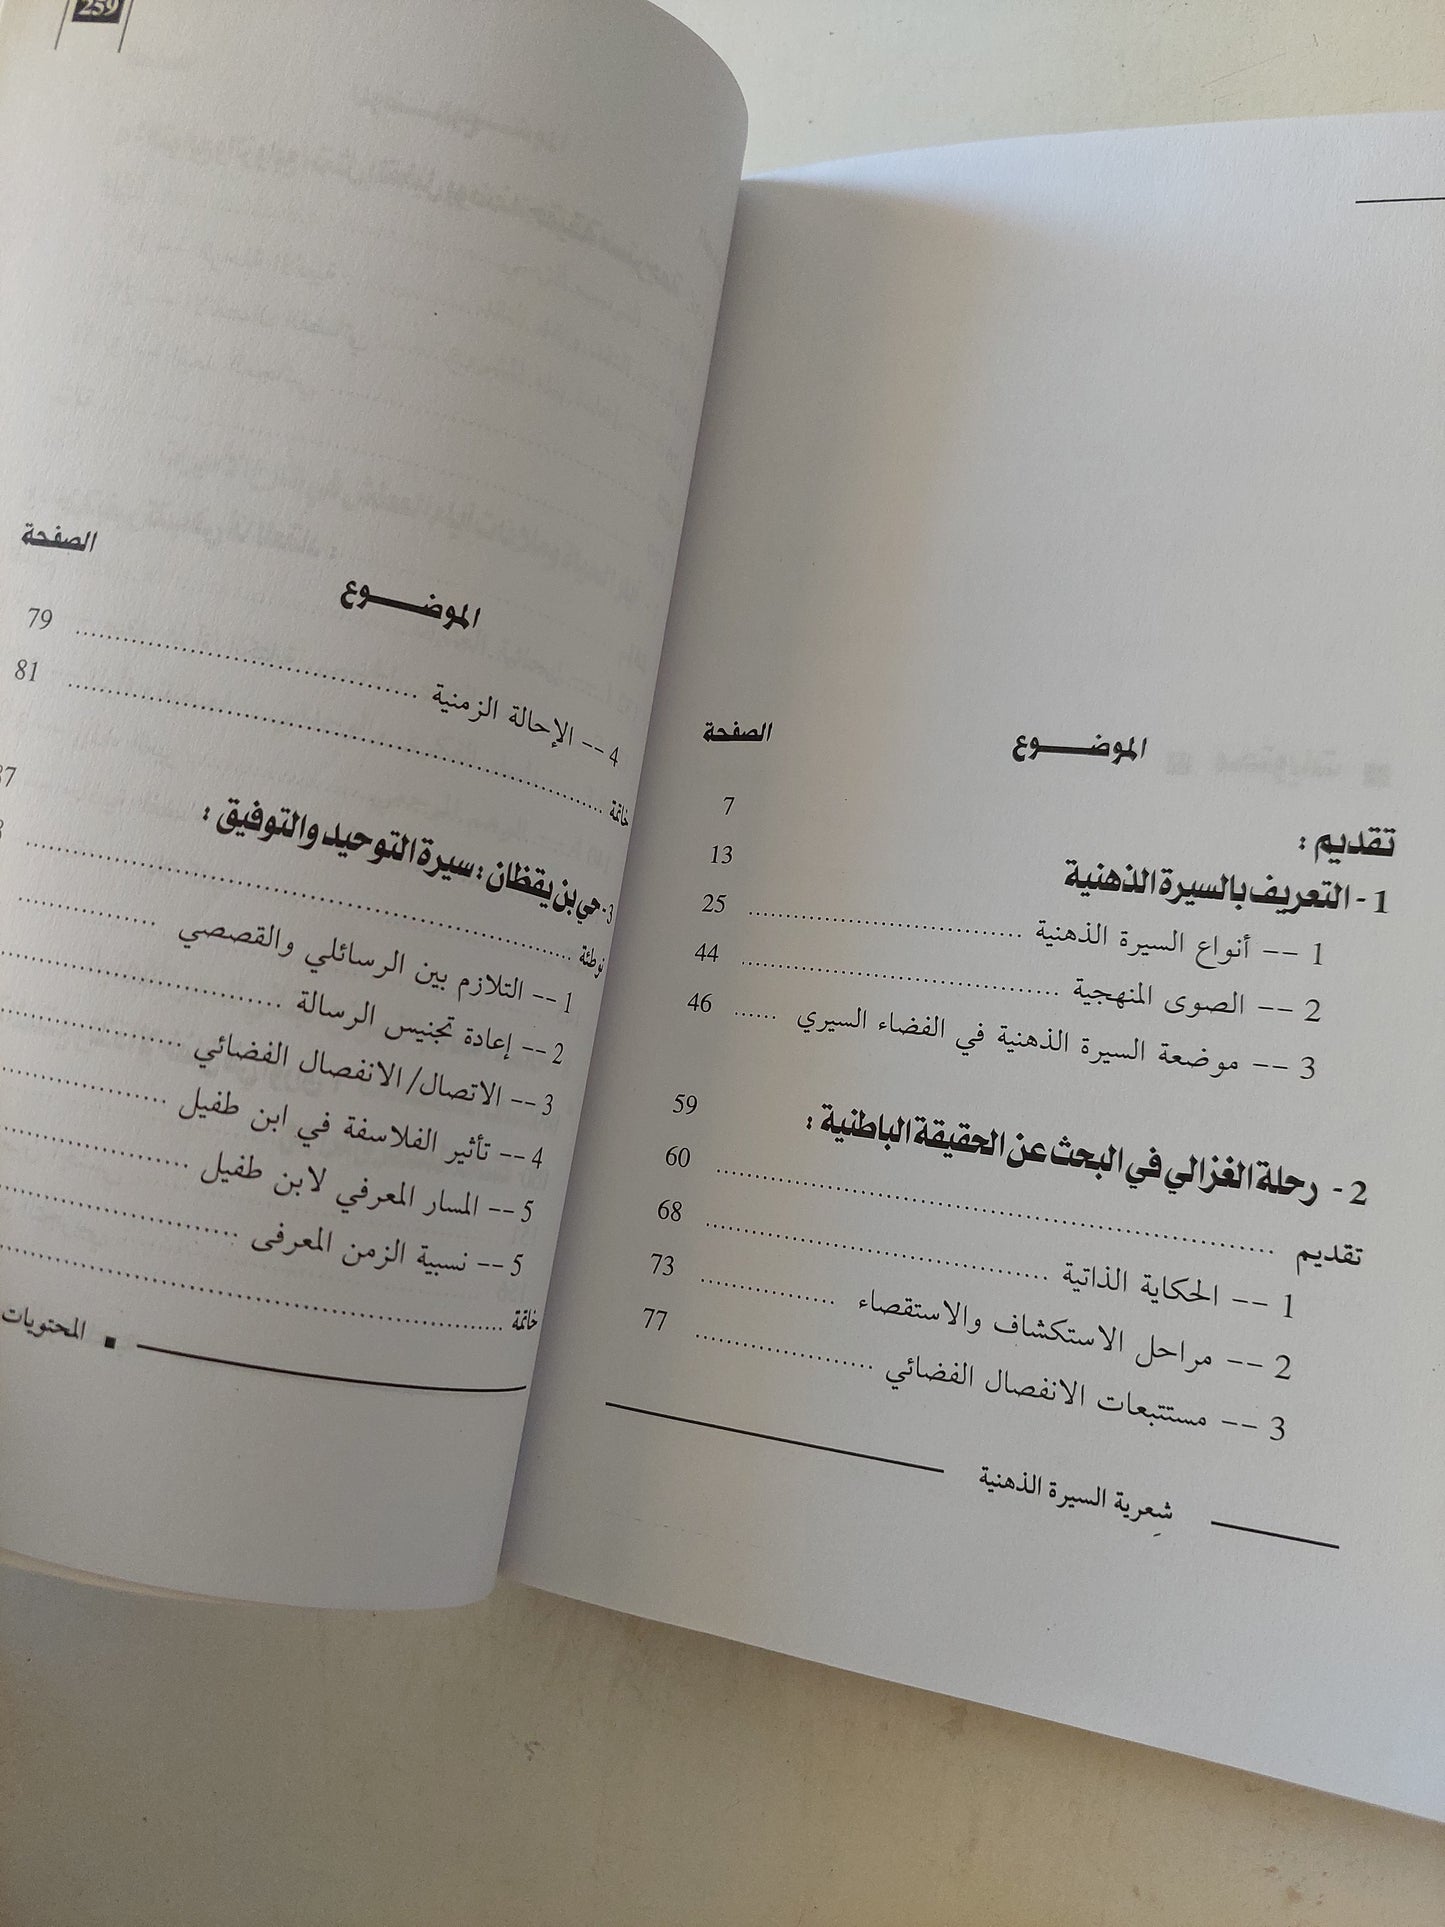 الموضـــــوع الصفحة
تقديم : 7
1 - التعريف بالسيرة الذهنية 13
1 -- أنواع السيرة الذهنية ........................ 25
2 -- الصوى المنهجية ........................ 44
3 -- موضعة السيرة الذهنية في الفضاء السيري ...... 46
2 - رحلة الغزالي في البحث عن الحقيقة الباطنية : 59
تقديم ........................ 60
1 -- الحكاية الذاتية ........................ 68
2 -- مراحل الاستكشاف والاستقصاء ............... 73
3 -- مستتبعات الانفصال الفضائي .................. 77
شِعرية السيرة الذهنية
259
الموضـــــوع الصفحة
4 -- الإحالة الزمنية ........................ 79
خاتمة ........................ 81
3- حي بن يقظان : سيرة التوحيد والتوفيق :
توطئة ........................
1 -- التلازم بين الرسائلي والقصصي ...............
2 -- إعادة تجنيس الرسالة ........................
3 -- الاتصال/الانفصال الفضائي ..................
4 -- تأثير الفلاسفة في ابن طفيل ..................
5 -- المسار المعرفي لابن طفيل ..................
5 -- نسبية الزمن المعرفى ........................
خاتمة ........................
المحتويات